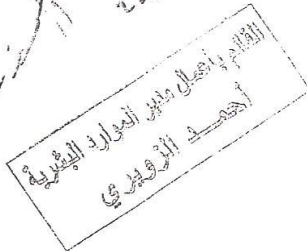 القائم بأعمال مدير الموارد البشرية
أحمد الزويري